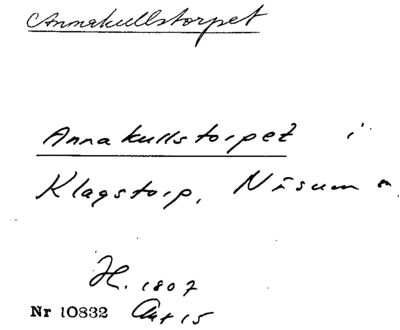 Annakullstorpet
Annakullstorpet i
Klagstorp, Näsum s.
H. 1807
Nr 10832 Akt 15